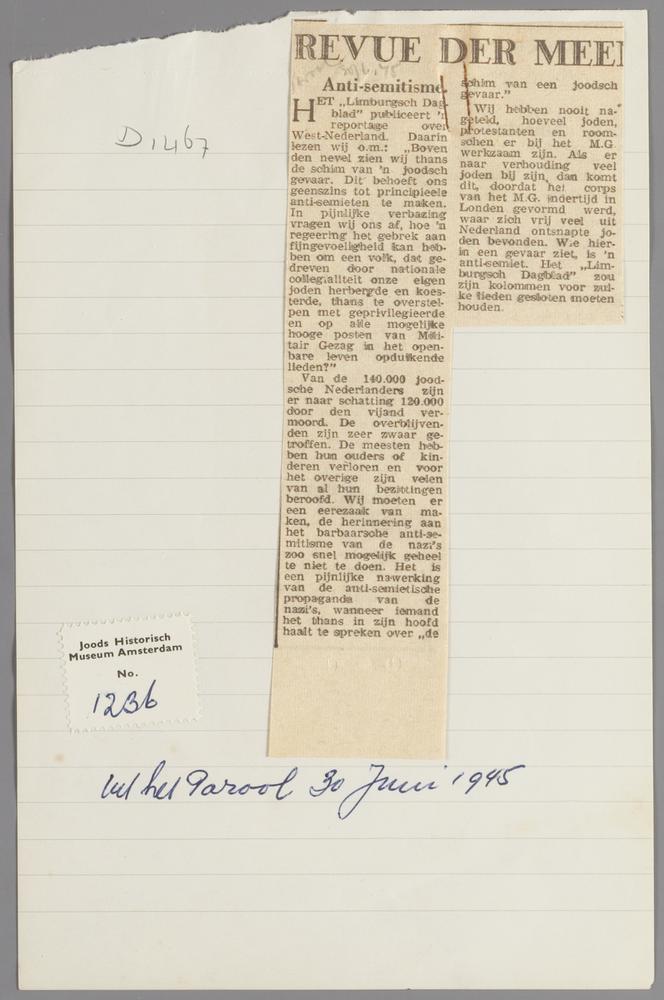 REVUE DER MEE
Anti-semitisme.
HET „Limburgsch Dag-
blad” publiceert 'n
reportage over
West-Nederland. Daarin
lezen wij o.m.: „Boven
den nevel zien wij thans
de schim van 'n joodsch
gevaar. Dit behoeft ons
geenszins tot principieele
anti-semieten te maken.
In pijnlijke verbazing
vragen wij ons af, hoe 'n
regeering het gebrek aan
fijngevoeligheid kan heb-
ben om een volk, dat ge-
dreven door nationale
collegialiteit onze eigen
joden herbergde en koes-
terde, thans te overstel-
pen met geprivilegieerde
en op alle mogelijke
hooge posten van Mili-
tair Gezag in het open-
bare leven opduikende
lieden?”
Van de 140.000 jood-
sche Nederlanders zijn
er naar schatting 120.000
door den vijand ver-
moord. De overblijven-
den zijn zeer zwaar ge-
troffen. De meesten heb-
ben hun ouders of kin-
deren verloren en voor
het overige zijn velen
van al hun bezittingen
beroofd. Wij moeten er
een eerezaak van ma-
ken, de herinnering aan
het barbaarsche anti-se-
mitisme van de nazi's
zoo snel mogelijk geheel
te niet te doen. Het is
een pijnlijke nawerking
van de anti-semietische
propaganda van de
nazi's, wanneer iemand
het thans in zijn hoofd
haalt te spreken over „de
schim van een joodsch
gevaar.”
Wij hebben nooit na-
geteld, hoeveel joden,
protestanten en room-
schen er bij het M.G.
werkzaam zijn. Als er
naar verhouding veel
joden bij zijn, dan komt
dit, doordat het corps
van het M.G. indertijd in
Londen gevormd werd,
waar zich vrij veel uit
Nederland ontsnapte jo-
den bevonden. Wie hier-
in een gevaar ziet, is 'n
anti-semiet. Het „Lim-
burgsch Dagblad” zou
zijn kolommen voor zul-
ke lieden gesloten moeten
houden.
D1467
Joods Historisch
Museum Amsterdam
No.
1236
uit het Parool 30 Juni 1945